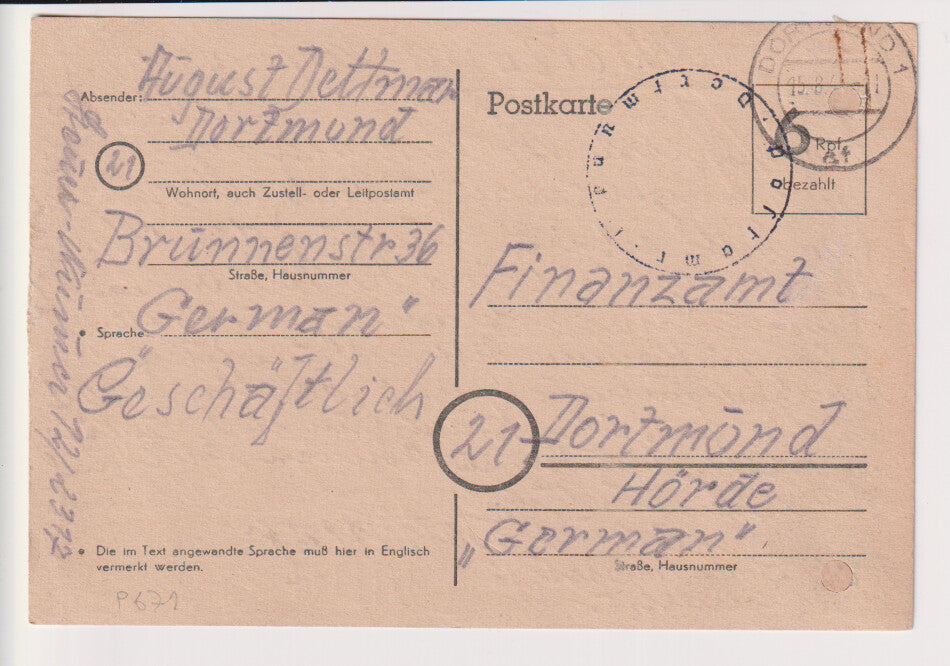 Absender: August Dettmar
Dortmund
21
Wohnort, auch Zustell- oder Leitpostamt
Brunnenstr 36
Straße, Hausnummer
• Sprache "German"
Geschäftlich
• Die im Text angewandte Sprache muß hier in Englisch
vermerkt werden.
P671
Postkarte
DORTMUND 1
15.8.
6 Rpf.
bezahlt
Finanzamt
21 Dortmund
Hörde
„German"
Straße, Hausnummer